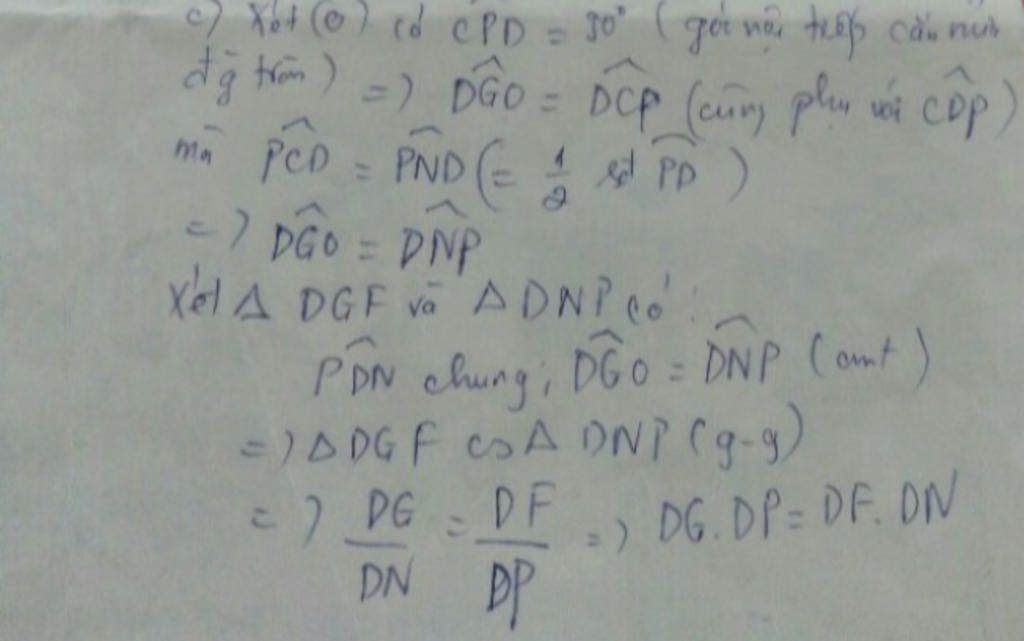 c) Xét (O) có CPD = 90° (góc nội tiếp chắn nửa
đg tròn) => DGO = DCP (cùng phụ với CDP)
mà PCD = PND (= 1/2 sđ PD)
=> DGO = DNP
Xét Δ DGF và Δ DNP có:
PDN chung; DGO = DNP (cmt)
=> Δ DGF ∽ Δ DNP (g-g)
=> DG/DN = DF/DP => DG.DP = DF.DN